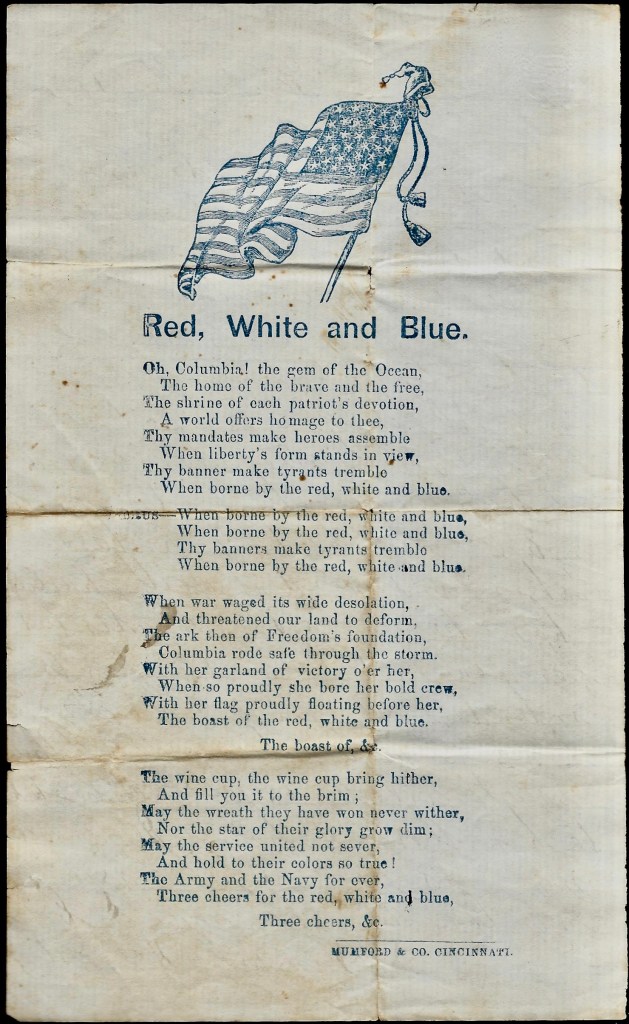 Red, White and Blue.
Oh, Columbia! the gem of the Ocean,
The home of the brave and the free,
The shrine of each patriot's devotion,
A world offers homage to thee,
Thy mandates make heroes assemble
When liberty's form stands in view,
Thy banner make tyrants tremble
When borne by the red, white and blue.
When borne by the red, white and blue,
When borne by the red, white and blue,
Thy banners make tyrants tremble
When borne by the red, white and blue.
When war waged its wide desolation,
And threatened our land to deform,
The ark then of Freedom's foundation,
Columbia rode safe through the storm.
With her garland of victory o'er her,
When so proudly she bore her bold crew,
With her flag proudly floating before her,
The boast of the red, white and blue.
The boast of, &c.
The wine cup, the wine cup bring hither,
And fill you it to the brim;
May the wreath they have won never wither,
Nor the star of their glory grow dim;
May the service united not sever,
And hold to their colors so true!
The Army and the Navy for ever,
Three cheers for the red, white and blue,
Three cheers, &c.
MUMFORD & CO. CINCINNATI.